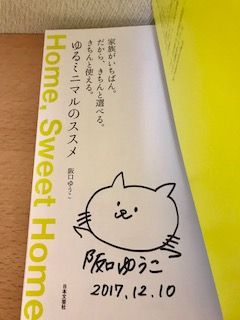 Home, Sweet Home
家族がいちばん。
だから、きちんと選べる。
きちんと使える。
ゆるミニマルのススメ
阪口ゆうこ
阪口ゆうこ
2017.12.10
日本文芸社